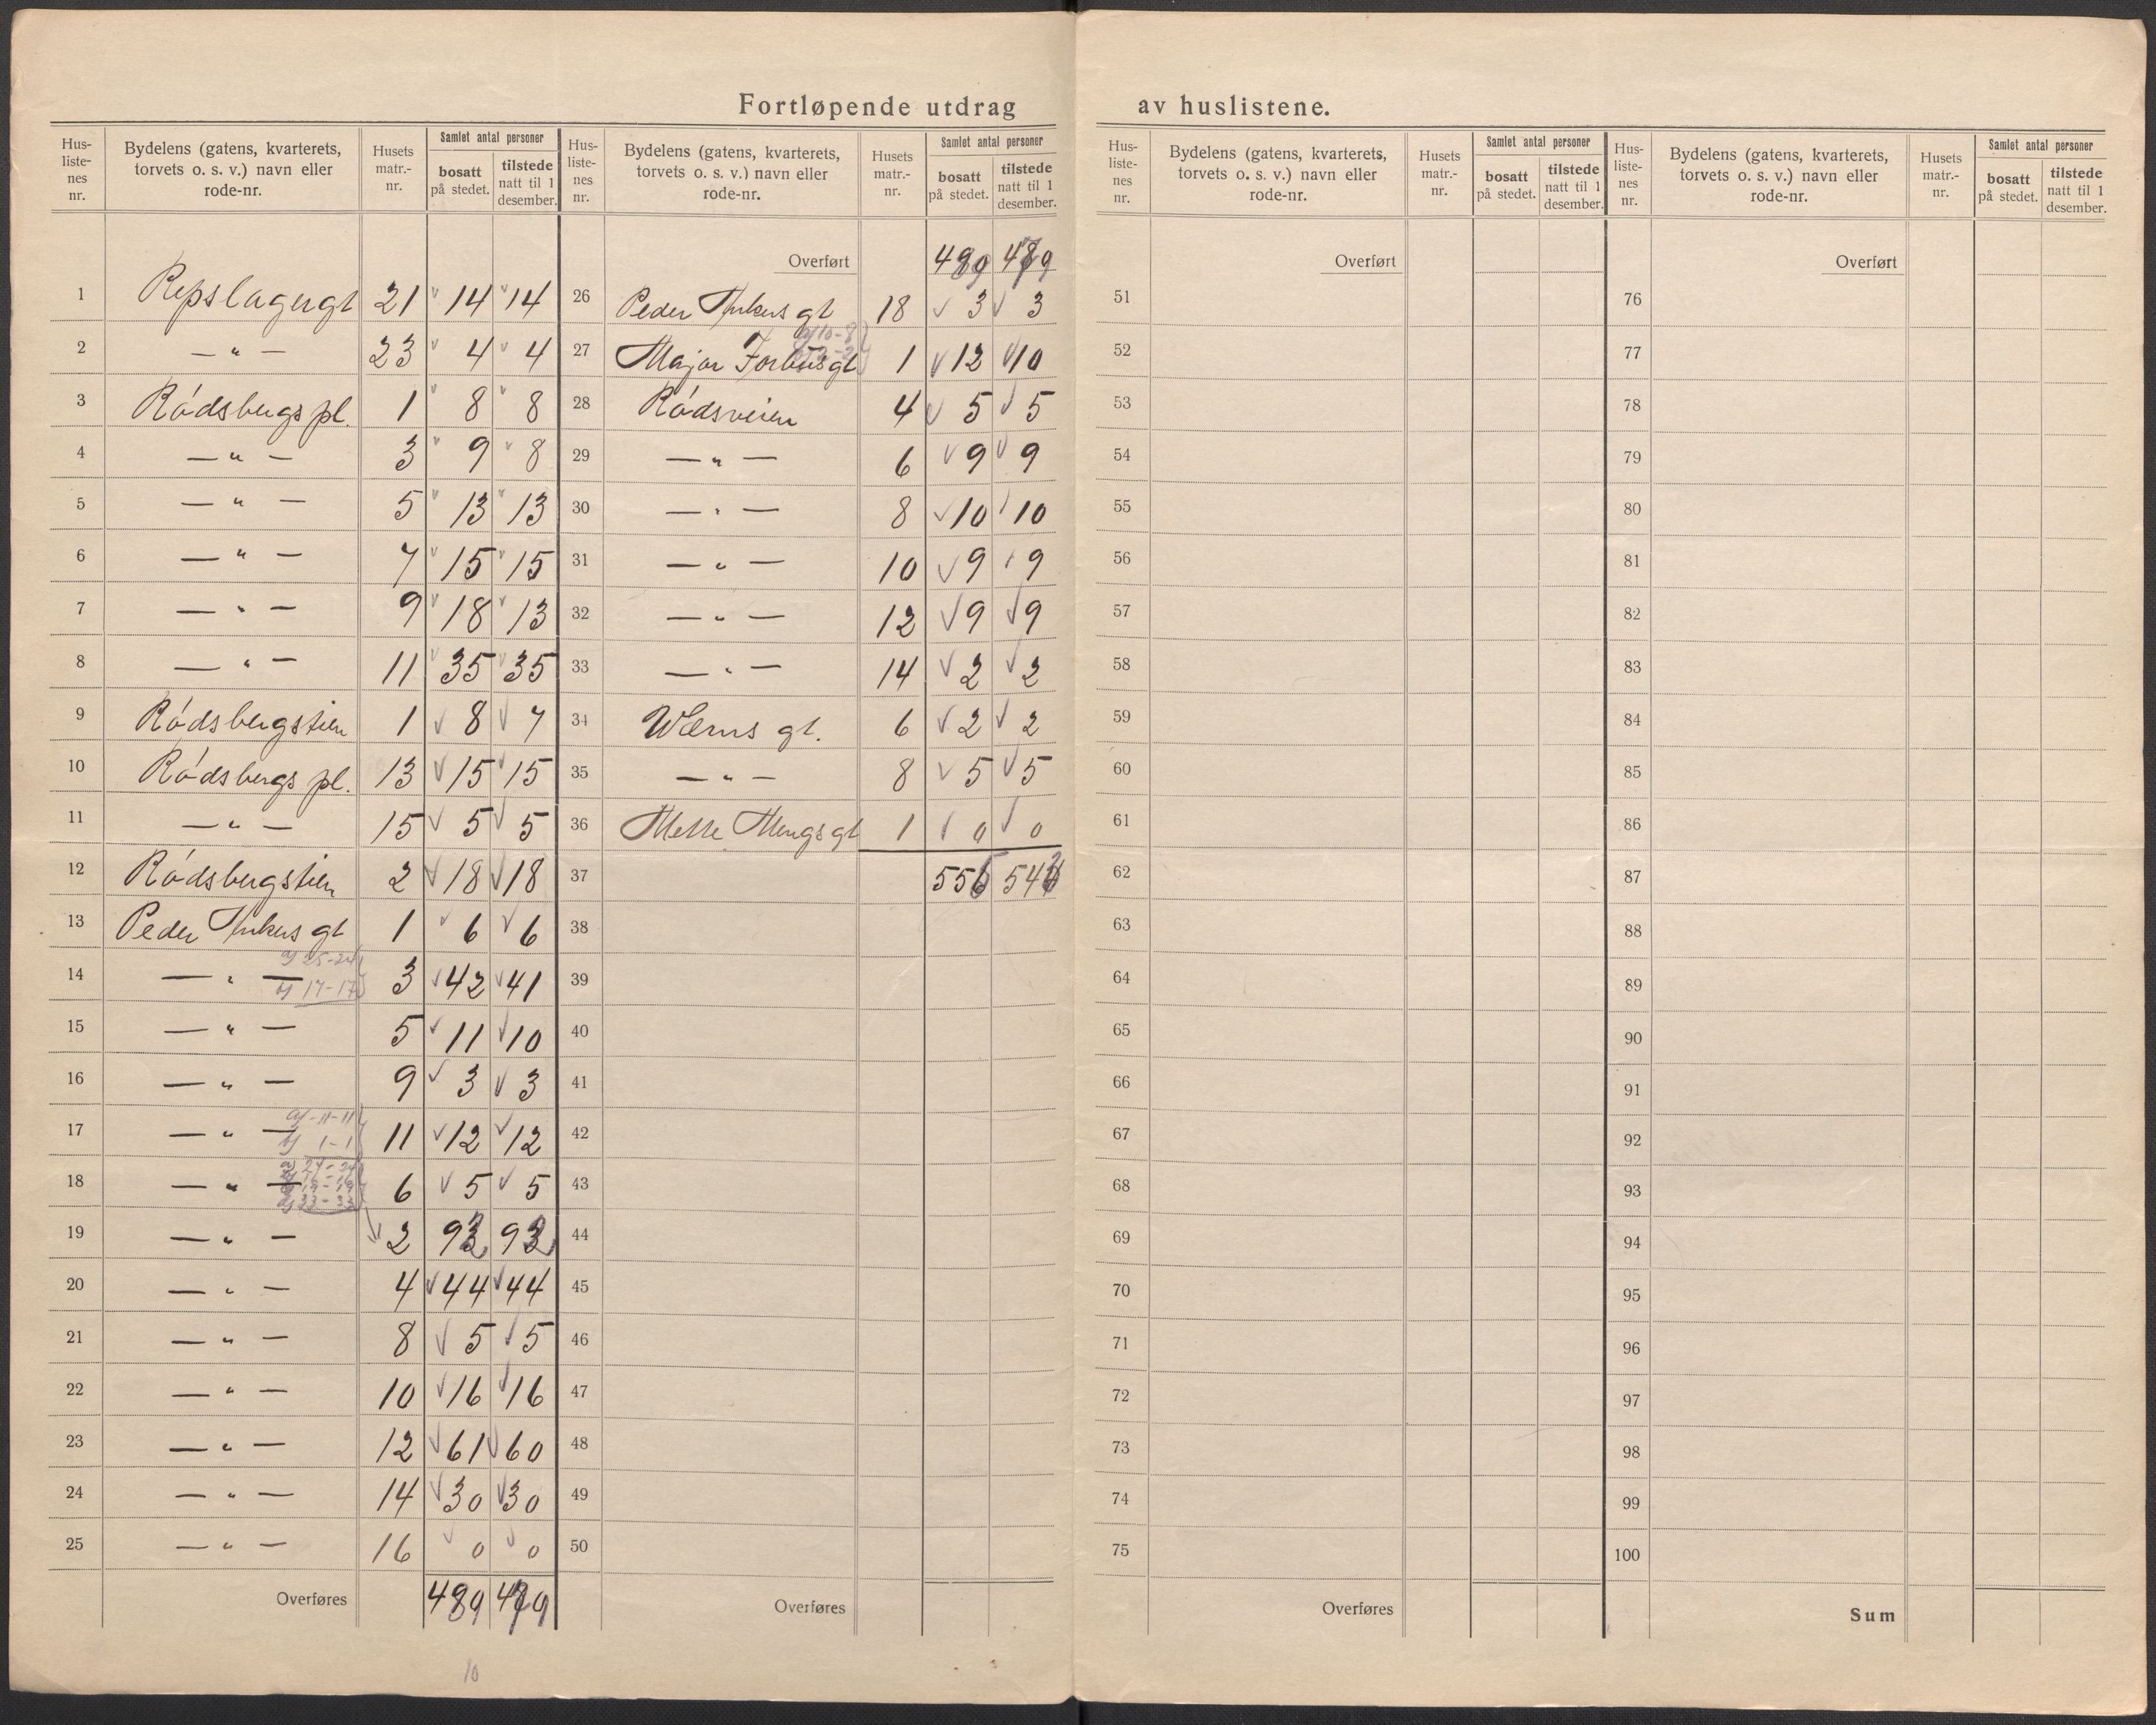 Fortløpende utdrag av huslistene.
Hus-listenes nr. Bydelens (gatens, kvarterets, torvets o. s. v.) navn eller rode-nr. Husets matr.-nr. Samlet antal personer bosatt på stedet. tilstede natt til 1 desember.
1 Repslagergt 21 14 14
2 — " — 23 4 4
3 Rødsbergs pl. 1 8 8
4 — " — 3 9 8
5 — " — 5 13 13
6 — " — 7 15 15
7 — " — 9 18 13
8 — " — 11 35 35
9 Rødsbergstien 1 8 7
10 Rødsbergs pl. 13 15 15
11 — " — 15 5 5
12 Rødsbergstien 2 18 18
13 Peder gt 1 6 6
a) 25-24
14 — " — 3 42 41
b) 17-17
15 — " — 5 11 10
16 — " — 9 3 3
a) 11-11
17 — " — 11 12 12
b) 1-1
18 — " — 6 5 5
19 — " — 2
20 — " — 4 44 44
21 — " — 8 5 5
22 — " — 10 16 16
23 — " — 12 61 60
24 — " — 14 30 30
25 — " — 16 0 0
Overføres 489 479
10
Hus-listenes nr. Bydelens (gatens, kvarterets, torvets o. s. v.) navn eller rode-nr. Husets matr.-nr. Samlet antal personer bosatt på stedet. tilstede natt til 1 desember.
Overført 489 479
26 Peder gt 18 3 3
a) 10-8
27 Major Forbusgt 1 12 10
28 Rødsveien 4 5 5
29 — " — 6 9 9
30 — " — 8 10 10
31 — " — 10 9 9
32 — " — 12 9 9
33 — " — 14 2 2
34 Wærns gt. 6 2 2
35 — " — 8 5 5
36 gt 1 0 0
37 555 543
38
39
40
41
42
43
44
45
46
47
48
49
50
Overføres
Hus-listenes nr. Bydelens (gatens, kvarterets, torvets o. s. v.) navn eller rode-nr. Husets matr.-nr. Samlet antal personer bosatt på stedet. tilstede natt til 1 desember.
Overført
51
52
53
54
55
56
57
58
59
60
61
62
63
64
65
66
67
68
69
70
71
72
73
74
75
Overføres
Hus-listenes nr. Bydelens (gatens, kvarterets, torvets o. s. v.) navn eller rode-nr. Husets matr.-nr. Samlet antal personer bosatt på stedet. tilstede natt til 1 desember.
Overført
76
77
78
79
80
81
82
83
84
85
86
87
88
89
90
91
92
93
94
95
96
97
98
99
100
Sum